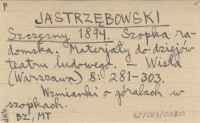 JASTRZĘBOWSKI
Szczęsny 1894. Szopka ra-
domska. Materjały do dziejów
teatru ludowego. — Wisła
(Warszawa) 8: 281-303.
Wzmianki o góralach w
szopkach.
BŻ, MT